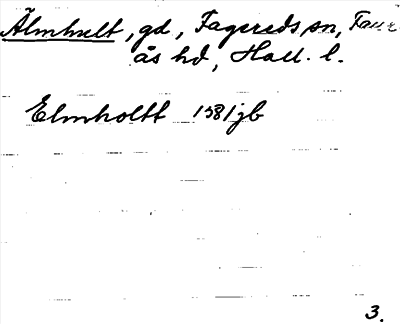 Älmhult, gd, Fagereds sn, Faur
ås hd, Hall. l.
Elmholtt 1581jb
3.